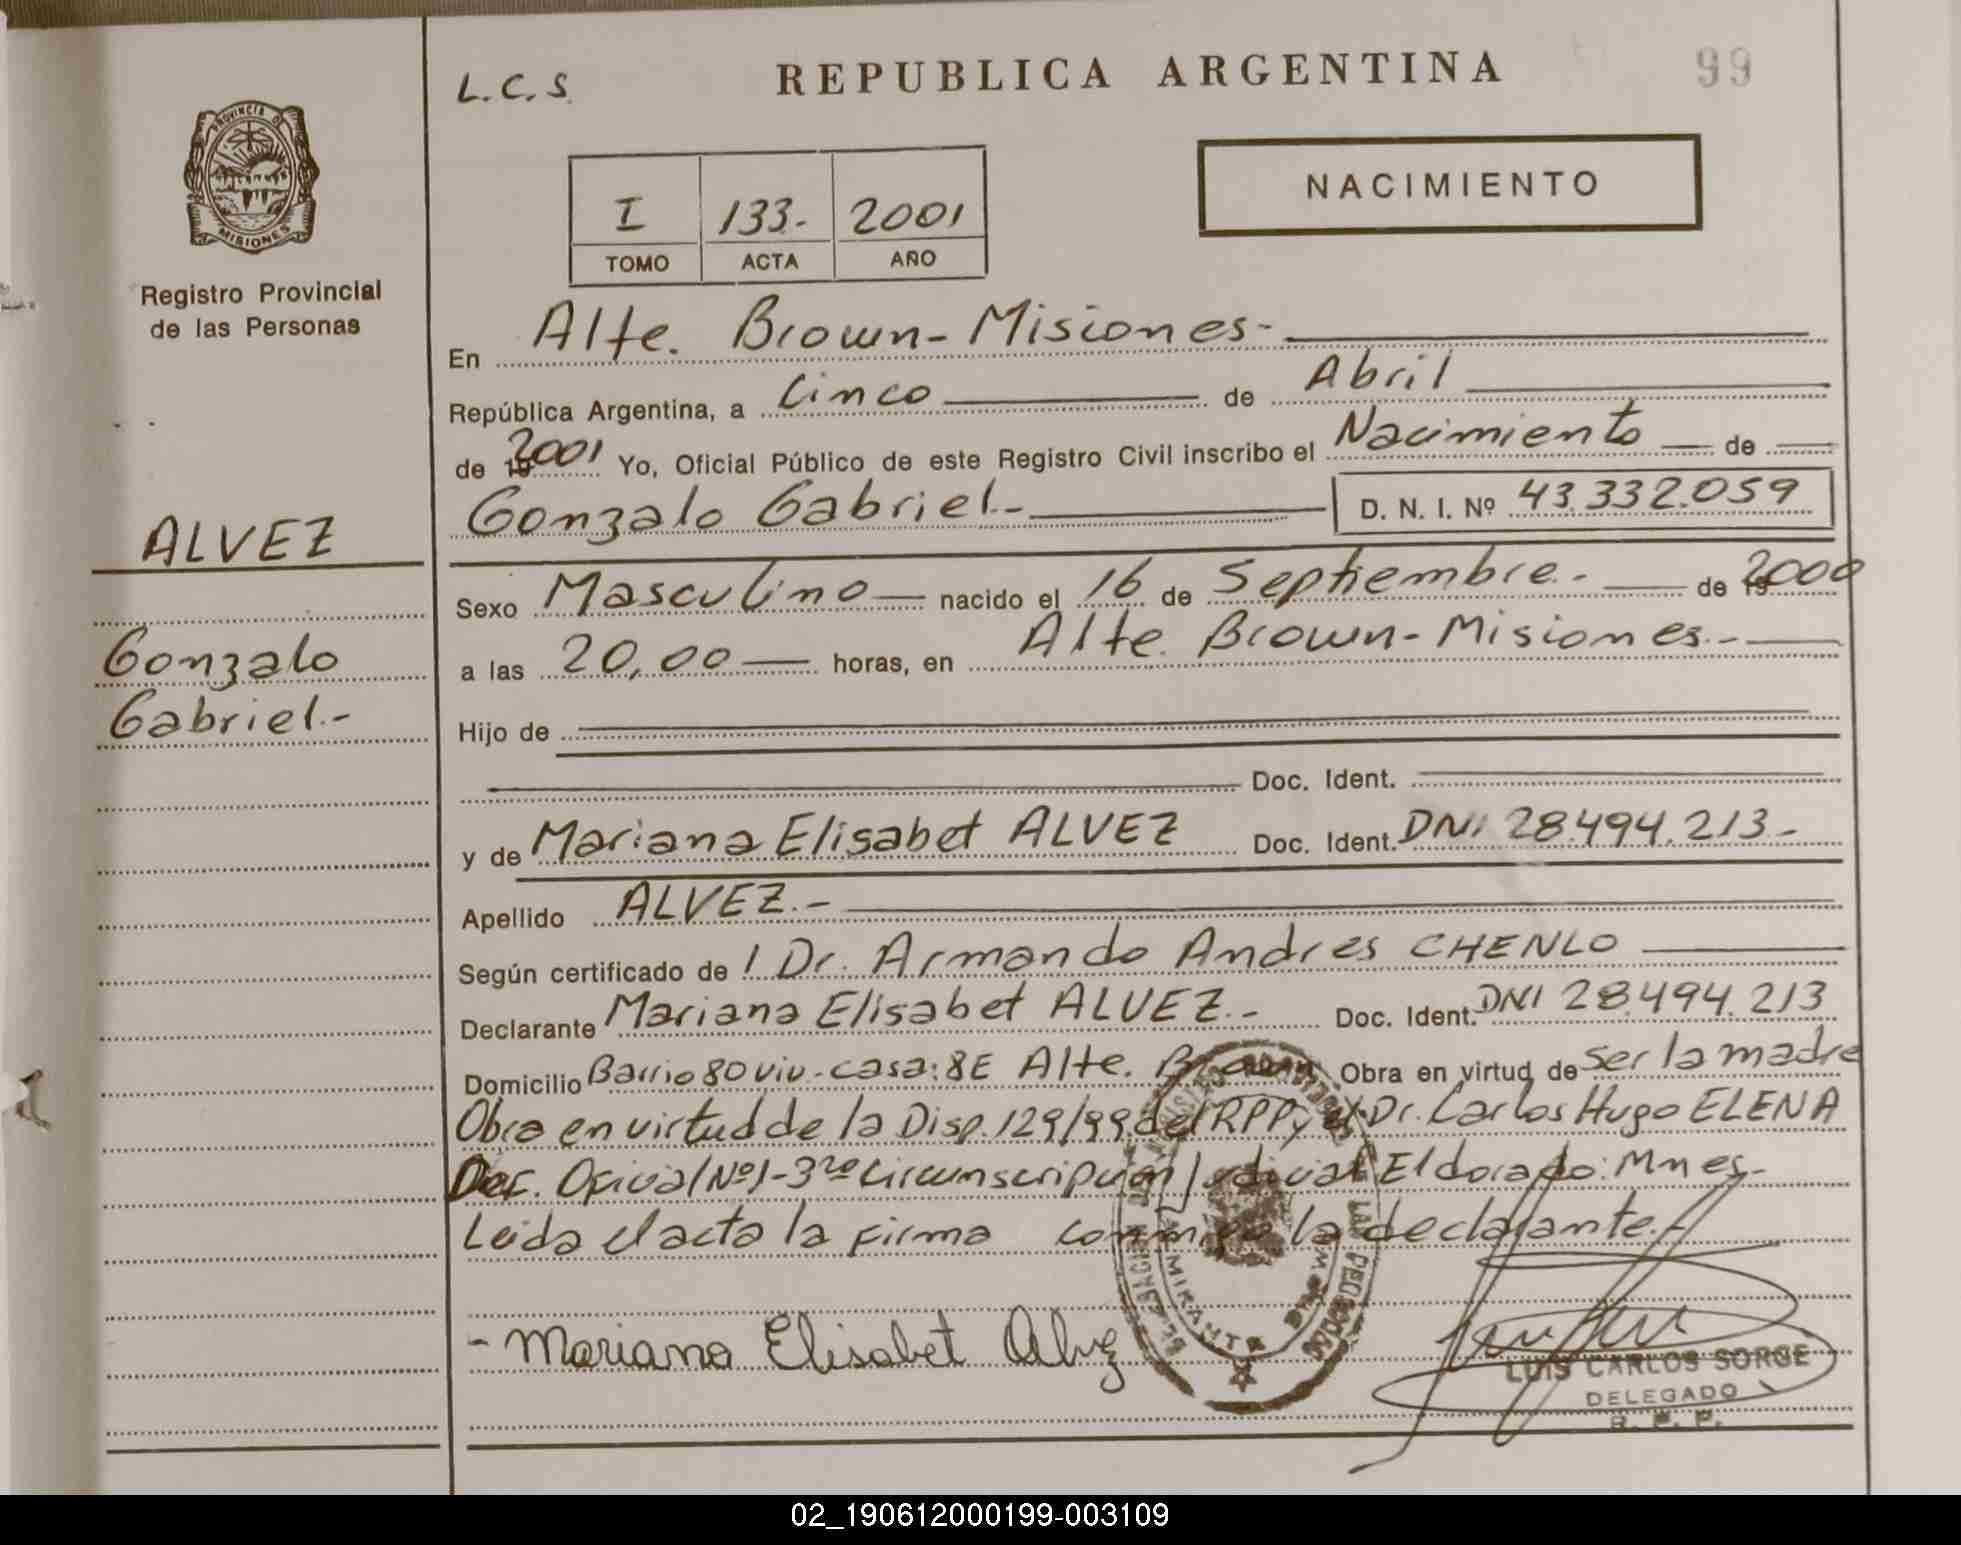 L.C.S.
REPUBLICA ARGENTINA
99
PROVINCIA D
MISIONES
Registro Provincial
de las Personas
I 133.- 2001
TOMO ACTA AÑO
NACIMIENTO
En Alte. Brown - Misiones.-
República Argentina, a Cinco de Abril
de 2001 Yo, Oficial Público de este Registro Civil inscribo el Nacimiento de
Gonzalo Gabriel.- D. N. I. Nº 43.332.059
ALVEZ
Gonzalo
Gabriel.-
Sexo Masculino nacido el 16 de Septiembre.- de 2000
a las 20,00 horas, en Alte. Brown - Misiones.-
Hijo de
Doc. Ident.
y de Mariana Elisabet ALVEZ Doc. Ident. DNI 28.494.213.-
Apellido ALVEZ.-
Según certificado de l Dr. Armando Andres CHENLO
Declarante Mariana Elisabet ALVEZ.- Doc. Ident. DNI 28.494.213
Domicilio Barrio 80 viv.- casa: 8E Alte. Brown Obra en virtud de Ser la madre
Obra en virtud de la Disp. 129/99 del RPP y el Dr. Carlos Hugo ELENA
Def. Oficial Nº1 - 3ra Circunscripción Judicial Eldorado: Mnes.-
Leida el acta la firma conmigo la declarante.-
- Mariana Elisabet Alvez
LUIS CARLOS SORGE
DELEGADO
R. P. P.
02_190612000199-003109